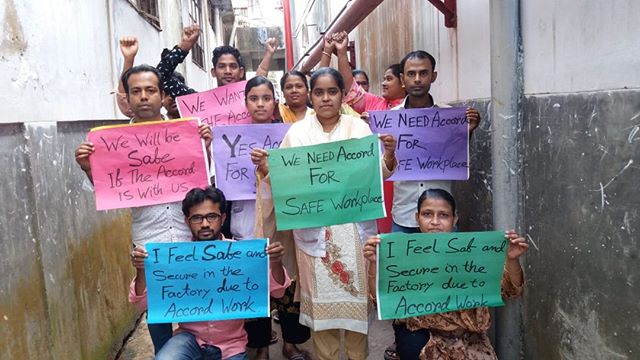 We Want
The Accord
We Will be
Safe
If The Accord
Is With Us
Yes Ac
For
We Need Accord
For
Safe Workplace
We Need Accord
For
Safe Workplace
I Feel Safe and
Secure in the
Factory due to
Accord Work.
I Feel Safe and
Secure in the
Factory due to
Accord Work.